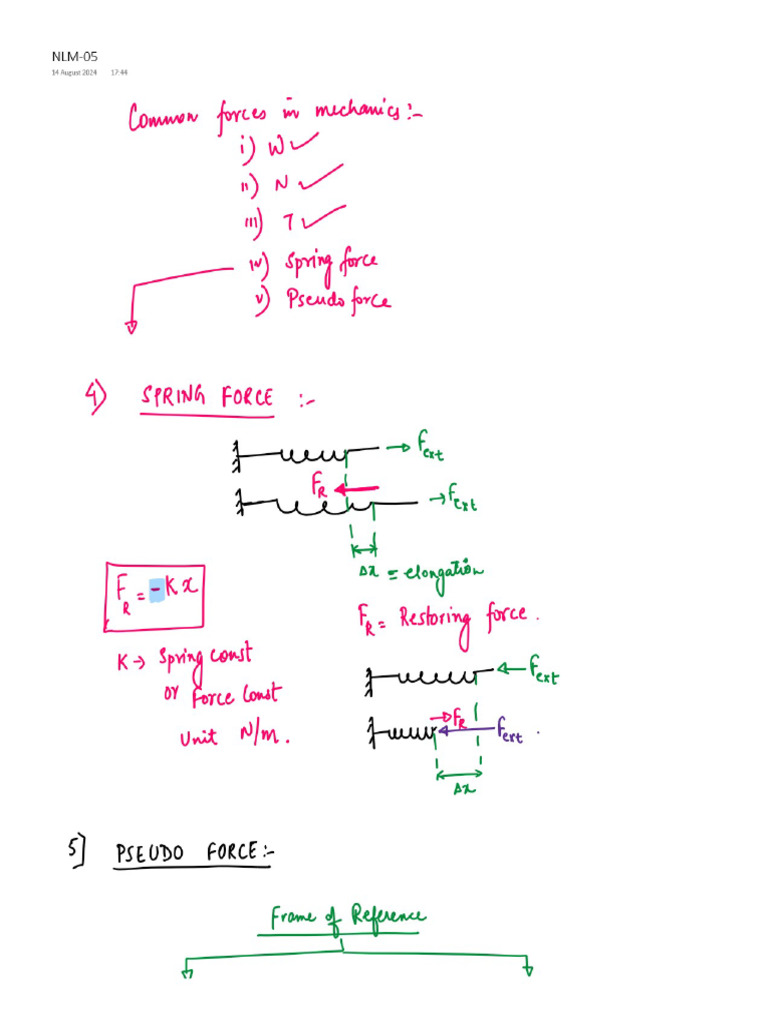 NLM-05
14 August 2024 17:44
Common forces in mechanics:-
i) W
ii) N
iii) T
iv) Spring force
v) Pseudo force
4) SPRING FORCE :-
Fext
FR
Fext
Δx = elongation
FR = -Kx
FR = Restoring force.
K → Spring const
or Force Const
Unit N/m.
Fext
FR
Fext.
Δx
5] PSEUDO FORCE:-
Frame of Reference